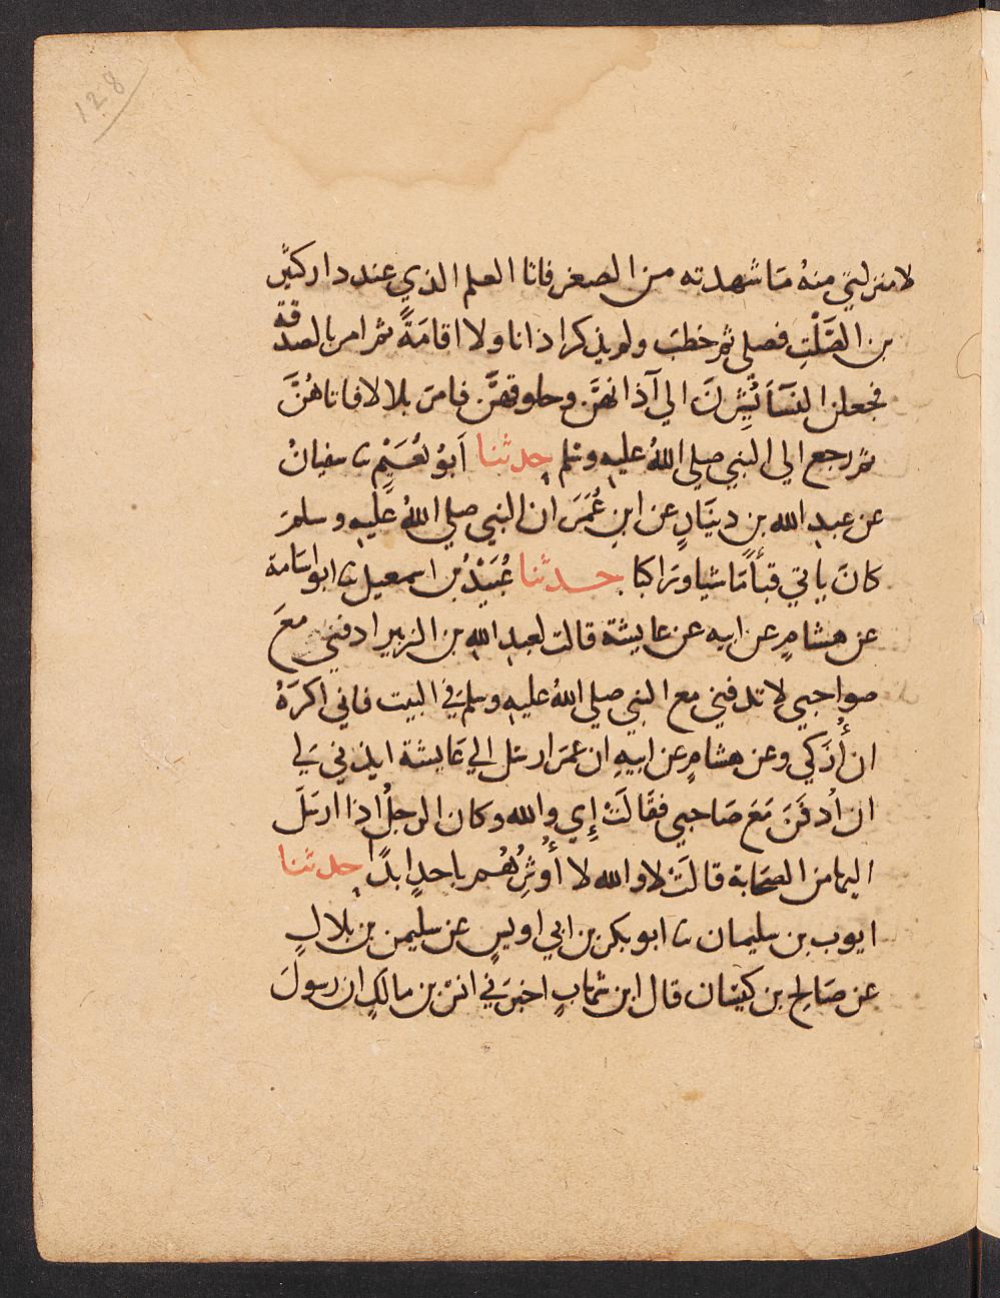 128
لا منزلتي منهُ مَا شهدته من الصغر فاتا العلم الذي عند دار كثير
بن الصَّلْتِ فصلى ثم خطبَ ولم يذكر اذانا ولا اقامَةً ثم امر بالصدقة
فجعلن النسَآءَ يُشِرنَ الي آذانهنَّ وحلوقهنَّ فامرَ بلالا فاتاهُنَّ
ثم رجع الي النبي صلي اللهُ عليه وسلم حدثنا اَبوُ نُعَيْمٍ ثنا سفيانُ
عن عبدِ الله بن دينَارٍ عن ابنِ عُمَرَ ان النبي صلي اللهُ عَليهِ وسلمَ
كانَ ياتي قبأً مَاشيا ورَاكبا حدثنا عُبَيْدُ بن اسمعيل ثنا ابو اسَامة
عن هشامٍ عن ابيه عن عايشة قالت لعبدِ اللهِ بن الزبير ادفني معَ
صواحبي لا تدفني مع النبي صلي اللهُ عليهِ وسلمَ في البيت فاني اكرَهُ
ان أُزَكي وعن هشامٍ عن ابيهِ ان عمَر ارسَل الي عَايشة ايذني لي
ان اُدفَنَ مَعَ صَاحبي فقَالَتْ إِي والله وكان الرجلُ اذا ارسَلَ
اليها من الصحَابة قالَتْ لا والله لا أُوثِرُهُم باحدٍ ابدًا حدثنا
ايوب بن سليمان ثنا ابو بكر بن ابي اويسٍ عن سليمن بن بلالٍ
عن صَالحِ بن كيسَان قال ابن شهَابٍ اخبرَني انس بن مالكٍ ان رسولَ